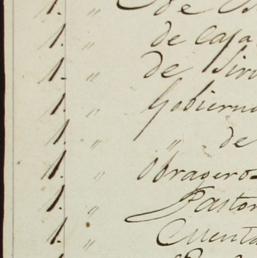 1. " de Es
1. " de Caja
1. " de Sirv
1. " Gobierno
1. " " de
1. " Obragero
1. " Pastor
1. " Cuenta